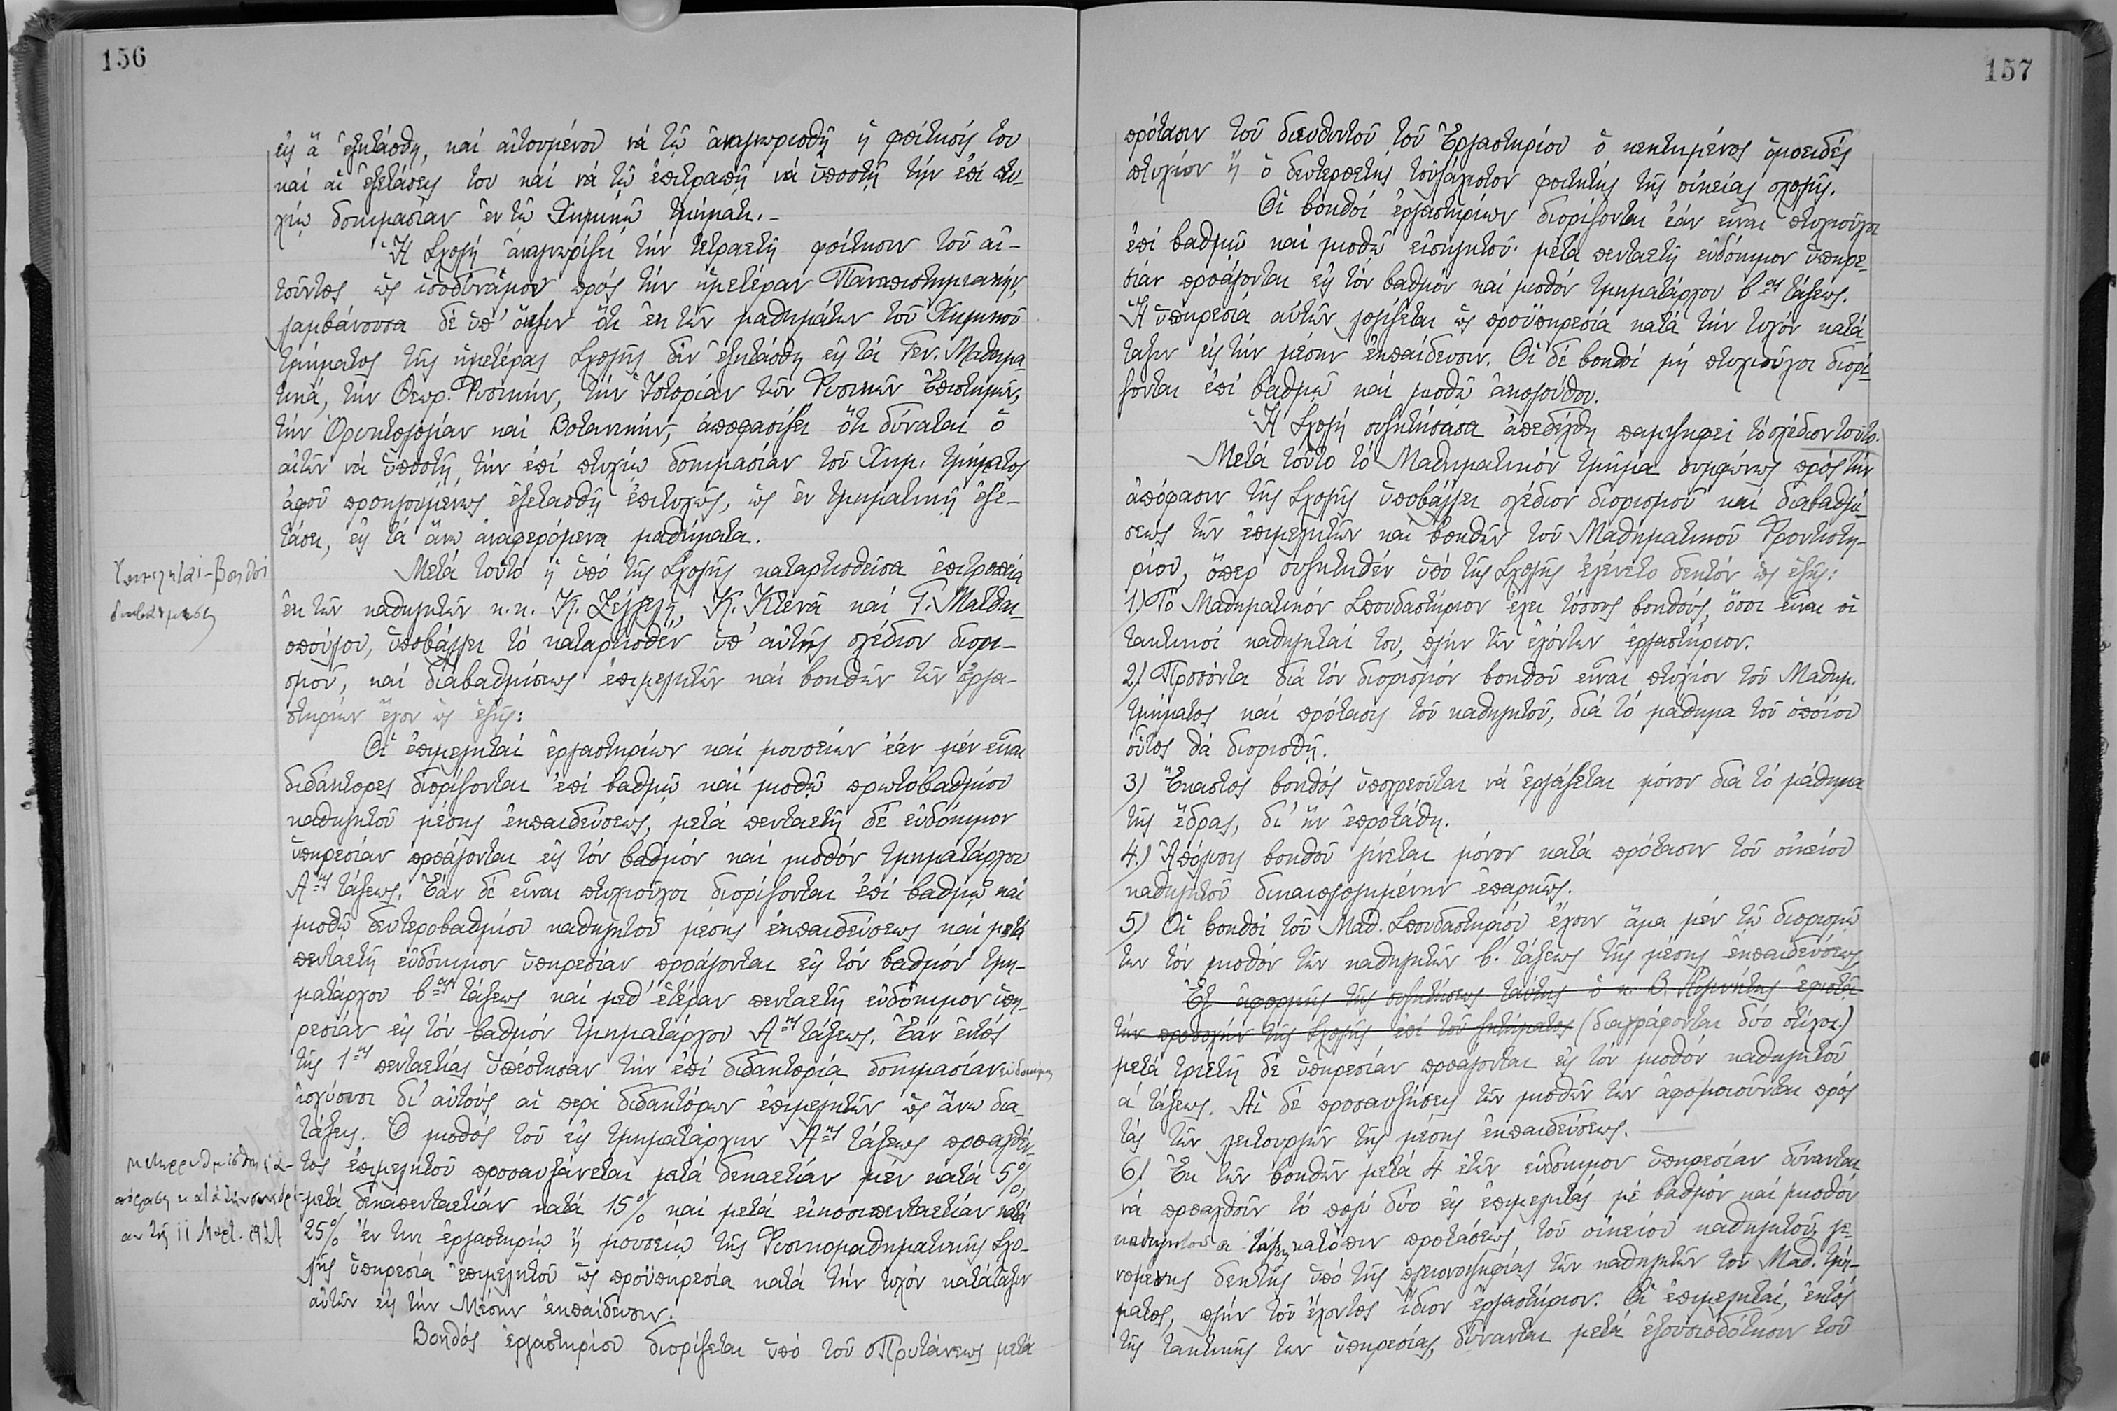 156
εἰς ἃ ἐξητάσθη, καί αἰτουμένου νά τῷ ἀναγνωρισθῇ ἡ φοίτησίς του
καί αἱ ἐξετάσεις του καί νά τῷ ἐπιτραπῇ νά ὑποστῇ τήν ἐπί πτυ-
χίῳ δοκιμασίαν ἐν τῷ Χημικῷ τμήματι.-
Ἡ Σχολή ἀναγνωρίζει τήν τετραετῆ φοίτησιν τοῦ αἰ-
τοῦντος ὡς ἰσοδύναμον πρός τήν ἡμετέραν Πανεπιστημιακήν,
λαμβάνουσα δέ ὑπ' ὄψιν ὅτι ἐκ τῶν μαθημάτων τοῦ Χημικοῦ
τμήματος τῆς ἡμετέρας Σχολῆς δέν ἐξητάσθη εἰς τά Γεν. Μαθημα-
τικά, τήν Θεωρ. Φυσικήν, τήν Ἱστορίαν τῶν Φυσικῶν Ἐπιστημῶν,
τήν Ὀρυκτολογίαν καί Βοτανικήν, ἀποφασίζει ὅτι δύναται ὁ
αἰτῶν νά ὑποστῇ τήν ἐπί πτυχίῳ δοκιμασίαν τοῦ Χημ. τμήματος
ἀφοῦ προηγουμένως ἐξετασθῇ ἐπιτυχῶς, ὡς ἐν τμηματικῇ ἐξε-
τάσει, εἰς τά ἄνω ἀναφερόμενα μαθήματα.
Ἐπιμεληταί-βοηθοί
Μετά τοῦτο ἡ ὑπό τῆς Σχολῆς καταρτισθεῖσα ἐπιτροπεία
ἐκ τῶν καθηγητῶν κ.κ. Κ. Ζέγγελη, Κ. Κτενᾶ καί Γ. Ματθαι-
οπούλου, ὑποβάλλει τό καταρτισθέν ὑπ' αὐτῆς σχέδιον διορι-
σμοῦ, καί διαβαθμίσεως ἐπιμελητῶν καί βοηθῶν τῶν ἐργα-
στηρίων ἔχον ὡς ἑξῆς:
Οἱ ἐπιμεληταί ἐργαστηρίων καί μουσείων ἐάν μέν εἶναι
διδάκτορες διορίζονται ἐπί βαθμῷ καί μισθῷ πρωτοβαθμίου
καθηγητοῦ μέσης ἐκπαιδεύσεως, μετά πενταετῆ δέ εὐδόκιμον
ὑπηρεσίαν προάγονται εἰς τόν βαθμόν καί μισθόν τμηματάρχου
Αης τάξεως. Ἐάν δέ εἶναι πτυχιοῦχοι διορίζονται ἐπί βαθμῷ καί
μισθῷ δευτεροβαθμίου καθηγητοῦ μέσης ἐκπαιδεύσεως καί μετά
πενταετῆ εὐδόκιμον ὑπηρεσίαν προάγονται εἰς τόν βαθμόν τμη-
ματάρχου βας τάξεως καί μεθ' ἑτέραν πενταετῆ εὐδόκιμον ὑπη-
ρεσίαν εἰς τόν βαθμόν τμηματάρχου Αης τάξεως. Ἐάν ἐντός
τῆς 1ης πενταετίας ὑπέστησαν τήν ἐπί διδακτορίᾳ δοκιμασίαν εὐδοκίμως
ἰσχύουσι δι' αὐτούς αἱ περί διδακτόρων ἐπιμελητῶν ὡς ἄνω δια-
τάξεις. Ὁ μισθός τοῦ εἰς τμηματάρχην Αης τάξεως προαχθέν-
τος ἐπιμελητοῦ προσαυξάνεται μετά δεκαετίαν μέν κατά 5%,
μετά δεκαπενταετίαν κατά 15% καί μετά εἰκοσιπενταετίαν κατά
25% Ἐν τινι ἐργαστηρίῳ ἤ μουσείῳ τῆς Φυσικομαθηματικῆς Σχο-
λῆς ὑπηρεσία ἐπιμελητοῦ ὡς προϋπηρεσία κατά τήν τυχόν κατάταξιν
αὐτῶν εἰς τήν Μέσην ἐκπαίδευσιν.
Βοηθός ἐργαστηρίου διορίζεται ὑπό τοῦ Πρυτάνεως μετά
157
πρότασιν τοῦ διευθυντοῦ τοῦ Ἐργαστηρίου ὁ κεκτημένος ὁμοειδές
πτυχίον ἤ ὁ δευτεροετής τοὐλάχιστον φοιτητής τῆς οἰκείας σχολῆς.
Οἱ βοηθοί ἐργαστηρίων διορίζονται ἐάν εἶναι πτυχιοῦχοι
ἐπί βαθμῷ καί μισθῷ εἰσηγητοῦ· μετά πενταετῆ εὐδόκιμον ὑπηρε-
σίαν προάγονται εἰς τόν βαθμόν καί μισθόν τμηματάρχου βας τάξεως.
Ἡ ὑπηρεσία αὐτῶν λογίζεται ὡς προϋπηρεσία κατά τήν τυχόν κατά-
ταξιν εἰς τήν μέσην ἐκπαίδευσιν. Οἱ δέ βοηθοί μή πτυχιοῦχοι διορί-
ζονται ἐπί βαθμῷ καί μισθῷ ἀκολούθου.
Ἡ Σχολή συζητήσασα ἀπεδέχθη παμψηφεί τό σχέδιον τοῦτο.
Μετά τοῦτο τό Μαθηματικόν τμῆμα συμφώνως πρός τήν
ἀπόφασιν τῆς Σχολῆς ὑποβάλλει σχέδιον διορισμοῦ καί διαβαθμί-
σεως τῶν ἐπιμελητῶν καί βοηθῶν τοῦ Μαθηματικοῦ Φροντιστη-
ρίου, ὅπερ συζητηθέν ὑπό τῆς Σχολῆς ἐγένετο δεκτόν ὡς ἑξῆς:
1) Τό Μαθηματικόν Σπουδαστήριον ἔχει τόσους βοηθούς, ὅσοι εἶναι οἱ
τακτικοί καθηγηταί του, πλήν τῶν ἐχόντων ἐργαστήριον.
2) Προσόντα διά τόν διορισμόν βοηθοῦ εἶναι πτυχίον τοῦ Μαθημ.
τμήματος καί πρότασις τοῦ καθηγητοῦ, διά τό μάθημα τοῦ ὁποίου
οὗτος θά διορισθῇ.
3) Ἕκαστος βοηθός ὑποχρεοῦται νά ἐργάζεται μόνον διά τό μάθημα
τῆς ἕδρας, δι' ἥν ἐπροτάθη.
4) Ἀπόλυσις βοηθοῦ γίνεται μόνον κατά πρότασιν τοῦ οἰκείου
καθηγητοῦ δικαιολογημένην ἐπαρκῶς.
5) Οἱ βοηθοί τοῦ Μαθ. Σπουδαστηρίου ἔχουν ἅμα μέν τῷ διορισμῷ
των τόν μισθόν τῶν καθηγητῶν β΄. τάξεως τῆς μέσης ἐκπαιδεύσεως,
Ἐξ ἀφορμῆς τῆς συζητήσεως ταύτης ὁ κ. ἐφιστᾷ
τήν προσοχήν τῆς Σχολῆς ἐπί τοῦ ζητήματος (διαγράφονται δύο στίχοι)
μετά τριετῆ δέ ὑπηρεσίαν προάγονται εἰς τόν μισθόν καθηγητοῦ
α΄ τάξεως. Αἱ δέ προσαυξήσεις τῶν μισθῶν των ἀφομοιοῦνται πρός
τάς τῶν λειτουργῶν τῆς μέσης ἐκπαιδεύσεως.
6) Ἐκ τῶν βοηθῶν μετά 4 ἐτῶν εὐδόκιμον ὑπηρεσίαν δύνανται
νά προαχθοῦν τό πολύ δύο εἰς ἐπιμελητάς μέ βαθμόν καί μισθόν
καθηγητοῦ α΄ τάξεως κατόπιν προτάσεως τοῦ οἰκείου καθηγητοῦ, γε-
νομένης δεκτῆς ὑπό τῆς πλειονοψηφίας τῶν καθηγητῶν τοῦ Μαθ. τμή-
ματος, πλήν τοῦ ἔχοντος ἴδιον ἐργαστήριον. Οἱ ἐπιμεληταί, ἐκτός
τῆς τακτικῆς των ὑπηρεσίας, δύνανται μετά ἐξουσιοδότησιν τοῦ